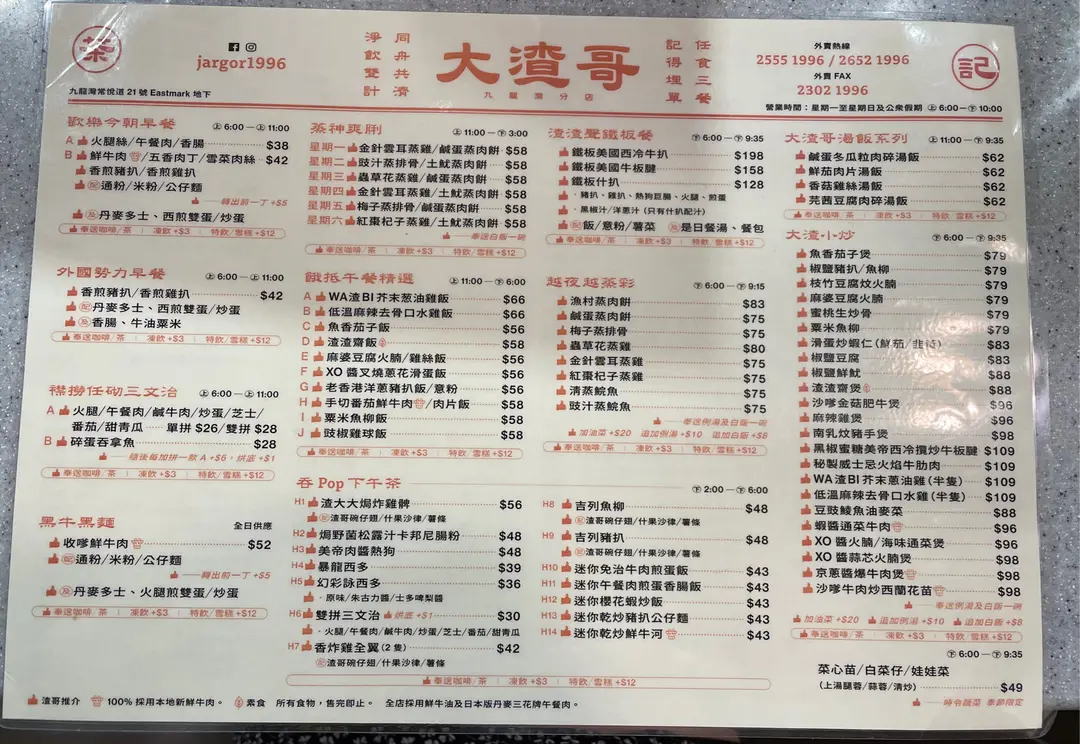 茶
jargor1996
九龍灣常悅道 21 號 Eastmark 地下
淨飲雙計
同舟共濟
大渣哥
九龍灣分店
記得埋單
任食三餐
外賣熱線
2555 1996 / 2652 1996
外賣 FAX
2302 1996
營業時間:星期一至星期日及公眾假期 上 6:00 — 下 10:00
記
歡樂今朝早餐 上 6:00 — 上 11:00
A 火腿絲/午餐肉/香腸 $38
B 鮮牛肉/五香肉丁/雪菜肉絲 $42
香煎豬扒/香煎雞扒
配通粉/米粉/公仔麵
轉出前一丁 +$5
及丹麥多士、西煎雙蛋/炒蛋
奉送咖啡/茶 | 凍飲 +$3 | 特飲/雪糕 +$12
外國勢力早餐 上 6:00 — 上 11:00
香煎豬扒/香煎雞扒 $42
配丹麥多士、西煎雙蛋/炒蛋
及香腸、牛油粟米
奉送咖啡/茶 | 凍飲 +$3 | 特飲/雪糕 +$12
襟撈任砌三文治 上 6:00 — 上 11:00
A 火腿/午餐肉/鹹牛肉/炒蛋/芝士/
番茄/甜青瓜 單拼 $26/雙拼 $28
B 碎蛋吞拿魚 $28
隨後每加拼一款 A +$6,烘底 +$1
奉送咖啡/茶 | 凍飲 +$3 | 特飲/雪糕 +$12
黑牛黑麵 全日供應
收嗲鮮牛肉 $52
配通粉/米粉/公仔麵
轉出前一丁 +$5
及丹麥多士、火腿煎雙蛋/炒蛋
奉送咖啡/茶 | 凍飲 +$3 | 特飲/雪糕 +$12
蒸神爽脷 上 11:00 — 下 3:00
星期一 金針雲耳蒸雞/鹹蛋蒸肉餅 $58
星期二 豉汁蒸排骨/土魷蒸肉餅 $58
星期三 蟲草花蒸雞/鹹蛋蒸肉餅 $58
星期四 金針雲耳蒸雞/土魷蒸肉餅 $58
星期五 梅子蒸排骨/鹹蛋蒸肉餅 $58
星期六 紅棗杞子蒸雞/土魷蒸肉餅 $58
奉送白飯一碗
奉送咖啡/茶 | 凍飲 +$3 | 特飲/雪糕 +$12
餓抵午餐精選 上 11:00 — 下 6:00
A WA渣BI芥末葱油雞飯 $66
B 低溫麻辣去骨口水雞飯 $66
C 魚香茄子飯 $56
D 渣渣齋飯 $58
E 麻婆豆腐火腩/雞絲飯 $56
F XO 醬叉燒蔥花滑蛋飯 $56
G 老香港洋蔥豬扒飯/意粉 $56
H 手切番茄鮮牛肉/肉片飯 $58
I 粟米魚柳飯 $58
J 豉椒雞球飯 $58
奉送咖啡/茶 | 凍飲 +$3 | 特飲/雪糕 +$12
渣渣聲鐵板餐 下 6:00 — 下 9:35
鐵板美國西冷牛扒 $198
鐵板美國牛板腱 $158
鐵板什扒 $128
· 豬扒、雞扒、熱狗巨腸、火腿、煎蛋
· 黑椒汁/洋蔥汁(只有什扒配汁)
配飯/意粉/薯菜 及是日餐湯、餐包
奉送咖啡/茶 | 凍飲 +$3 | 特飲/雪糕 +$12
越夜越蒸彩 下 6:00 — 下 9:15
漁村蒸肉餅 $83
鹹蛋蒸肉餅 $75
梅子蒸排骨 $75
蟲草花蒸雞 $80
金針雲耳蒸雞 $75
紅棗杞子蒸雞 $75
清蒸鯇魚 $75
豉汁蒸鯇魚 $75
奉送例湯及白飯一碗
加油菜 +$20 追加例湯 +$10 追加白飯 +$8
奉送咖啡/茶 | 凍飲 +$3 | 特飲/雪糕 +$12
吞 Pop 下午茶 下 2:00 — 下 6:00
H1 渣大大焗炸雞髀 $56
配渣哥碗仔翅/什果沙律/薯條
H2 焗野菌松露汁卡邦尼腸粉 $48
H3 美帝肉醬熱狗 $48
H4 暴龍西多 $39
H5 幻彩詠西多 $36
· 原味/朱古力醬/士多啤梨醬
H6 雙拼三文治 烘底 +$1 $30
· 火腿/午餐肉/鹹牛肉/炒蛋/芝士/番茄/甜青瓜
H7 香炸雞全翼(2 隻) $42
配渣哥碗仔翅/什果沙律/薯條
H8 吉列魚柳 $48
配渣哥碗仔翅/什果沙律/薯條
H9 吉列豬扒 $48
配渣哥碗仔翅/什果沙律/薯條
H10 迷你免治牛肉煎蛋飯 $43
H11 迷你午餐肉煎蛋香腸飯 $43
H12 迷你櫻花蝦炒飯 $43
H13 迷你乾炒豬扒公仔麵 $43
H14 迷你乾炒鮮牛河 $43
奉送咖啡/茶 | 凍飲 +$3 | 特飲/雪糕 +$12
大渣哥湯飯系列 上 11:00 — 下 9:35
鹹蛋冬瓜粒肉碎湯飯 $62
鮮茄肉片湯飯 $62
香菇雞絲湯飯 $62
芫茜豆腐肉碎湯飯 $62
奉送咖啡/茶 | 凍飲 +$3 | 特飲/雪糕 +$12
大渣小炒 下 6:00 — 下 9:35
魚香茄子煲 $79
椒鹽豬扒/魚柳 $79
枝竹豆腐炆火腩 $79
麻婆豆腐火腩 $79
蜜桃生炒骨 $79
粟米魚柳 $79
滑蛋炒蝦仁(鮮茄/韭黃) $83
椒鹽豆腐 $83
椒鹽鮮魷 $88
渣渣齋煲 $88
沙嗲金菇肥牛煲 $96
麻辣雞煲 $96
南乳炆豬手煲 $98
黑椒蜜糖美帝西冷攬炒牛板腱 $109
秘製威士忌火焰牛肋肉 $109
WA渣BI芥末蔥油雞(半隻) $109
低溫麻辣去骨口水雞(半隻) $109
豆豉鯪魚油麥菜 $88
蝦醬通菜牛肉 $96
XO 醬火腩/海味通菜煲 $96
XO 醬蒜芯火腩煲 $98
京蔥醬爆牛肉煲 $98
沙嗲牛肉炒西蘭花苗 $98
奉送例湯及白飯一碗
加油菜 +$20 追加例湯 +$10 追加白飯 +$8
奉送咖啡/茶 | 凍飲 +$3 | 特飲/雪糕 +$12
下 6:00 — 下 9:35
菜心苗/白菜仔/娃娃菜
(上湯腿蓉/蒜蓉/清炒) $49
時令蔬菜 季節限定
渣哥推介 100% 採用本地新鮮牛肉。 素食 所有食物,售完即止。 全店採用鮮牛油及日本版丹麥三花牌午餐肉。